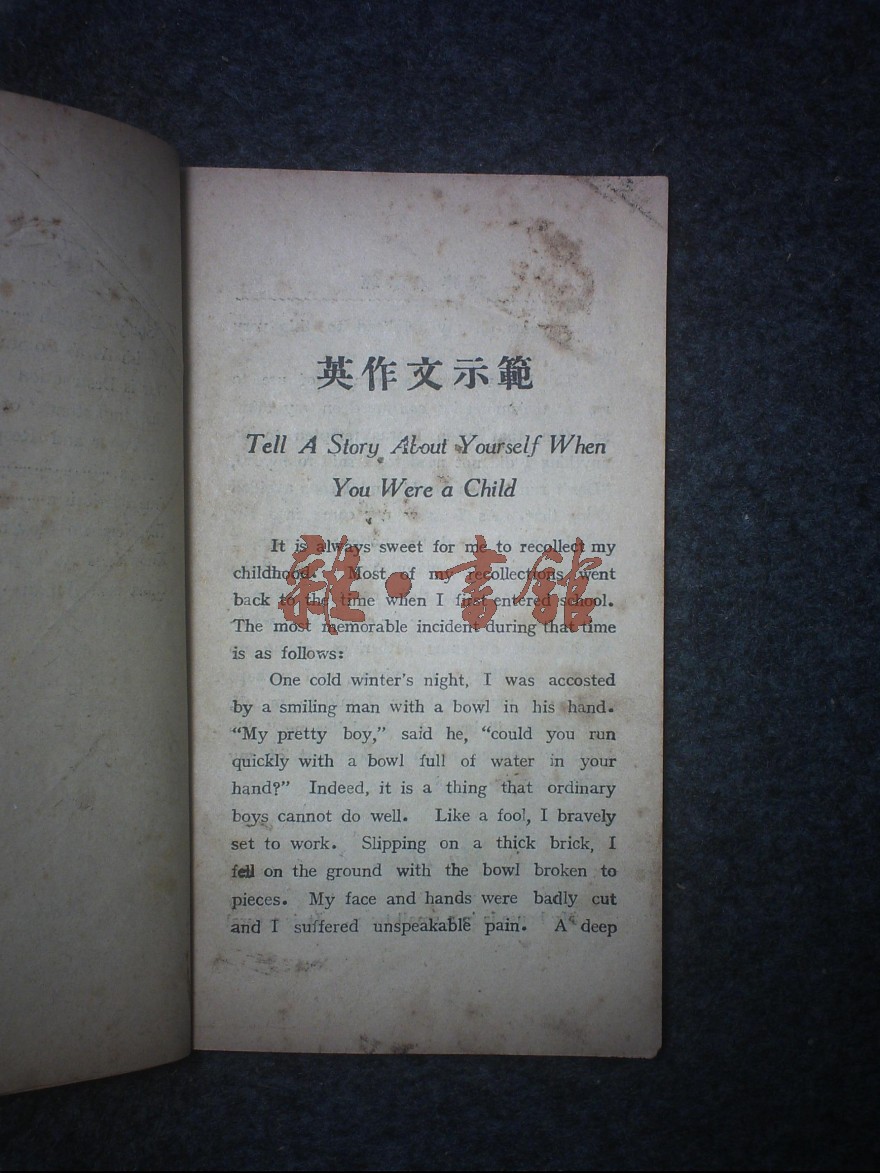 英作文示範
Tell A Story About Yourself When
You Were a Child
It is always sweet for me to recollect my
childhood. Most of my recollections went
back to the time when I first entered school.
The most memorable incident during that time
is as follows:
One cold winter's night, I was accosted
by a smiling man with a bowl in his hand.
“My pretty boy,” said he, “could you run
quickly with a bowl full of water in your
hand?” Indeed, it is a thing that ordinary
boys cannot do well. Like a fool, I bravely
set to work. Slipping on a thick brick, I
fell on the ground with the bowl broken to
pieces. My face and hands were badly cut
and I suffered unspeakable pain. A deep
雜·書館